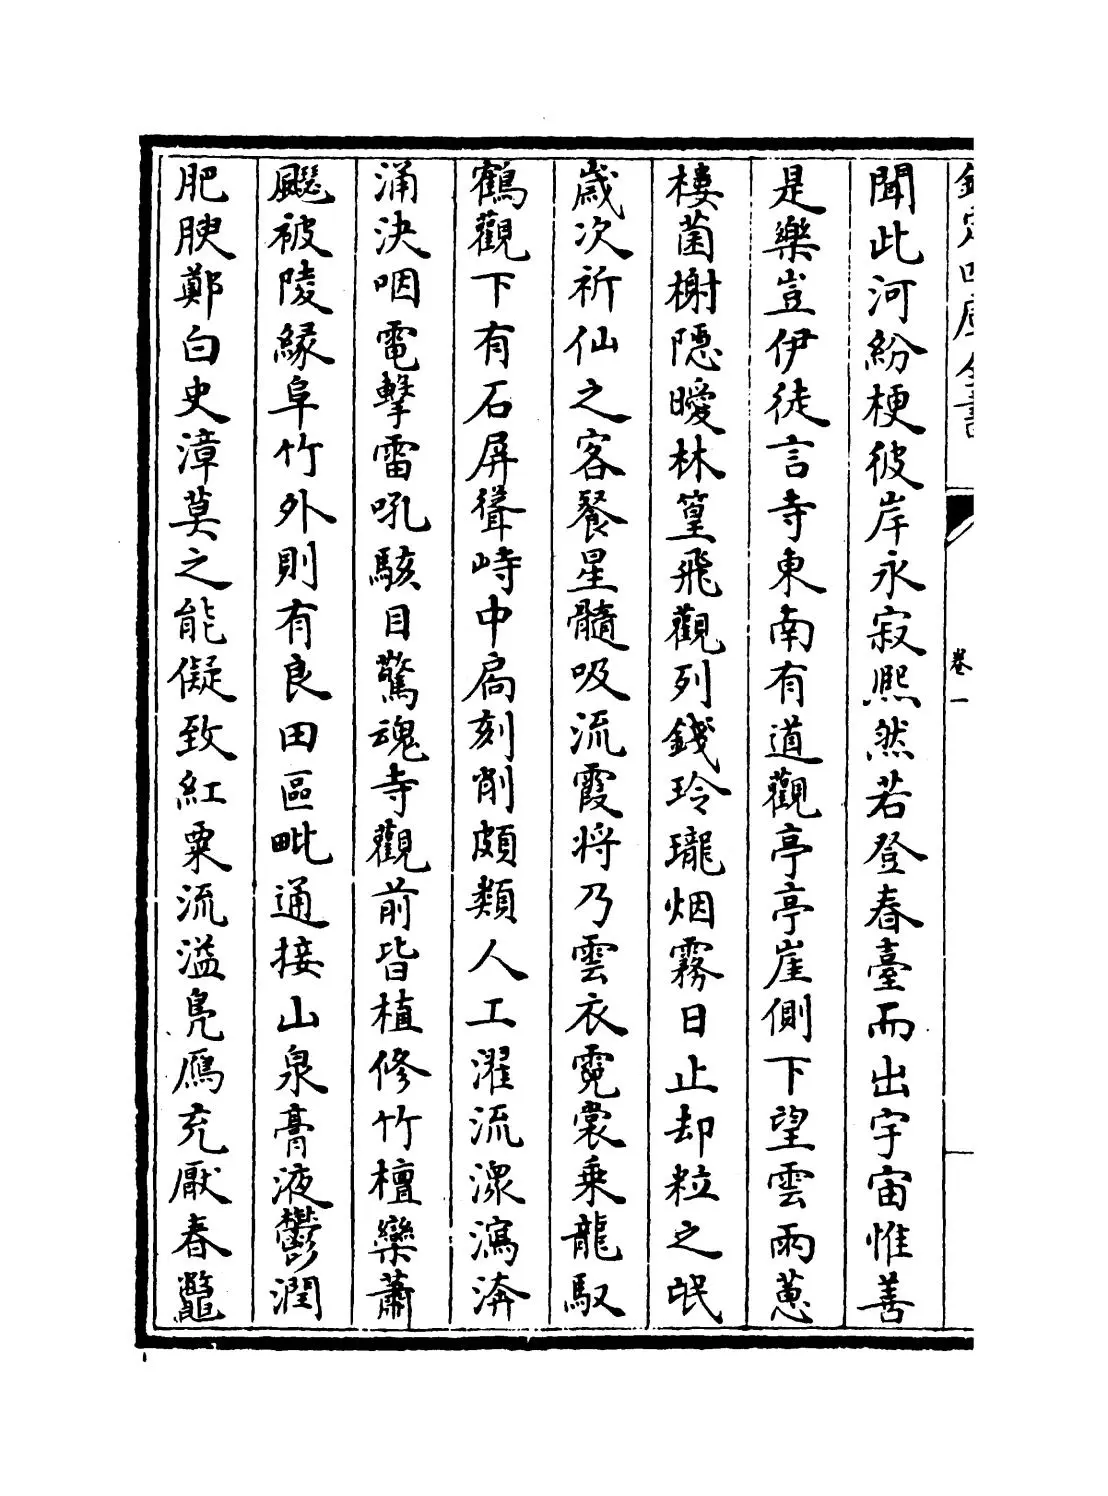 欽定四庫全書
卷一
聞此河紛梗彼岸永寂熙然若登春臺而出宇宙惟善
是樂豈伊徒言寺東南有道觀亭亭崖側下望雲雨蕙
樓菌榭隱曖林篁飛觀列錢玲瓏烟霧日止却粒之氓
歲次祈仙之客餐星髓吸流霞將乃雲衣霓裳乘龍馭
鶴觀下有石屏聳峙中扃刻削頗類人工濯流潈瀉渀
涌決咽電擊雷吼駭目驚魂寺觀前皆植修竹檀欒蕭
颾被陵緣阜竹外則有良田區毗通接山泉膏液鬱潤
肥腴鄭白史漳莫之能儗致紅粟流溢鳧鴈充厭春鼈